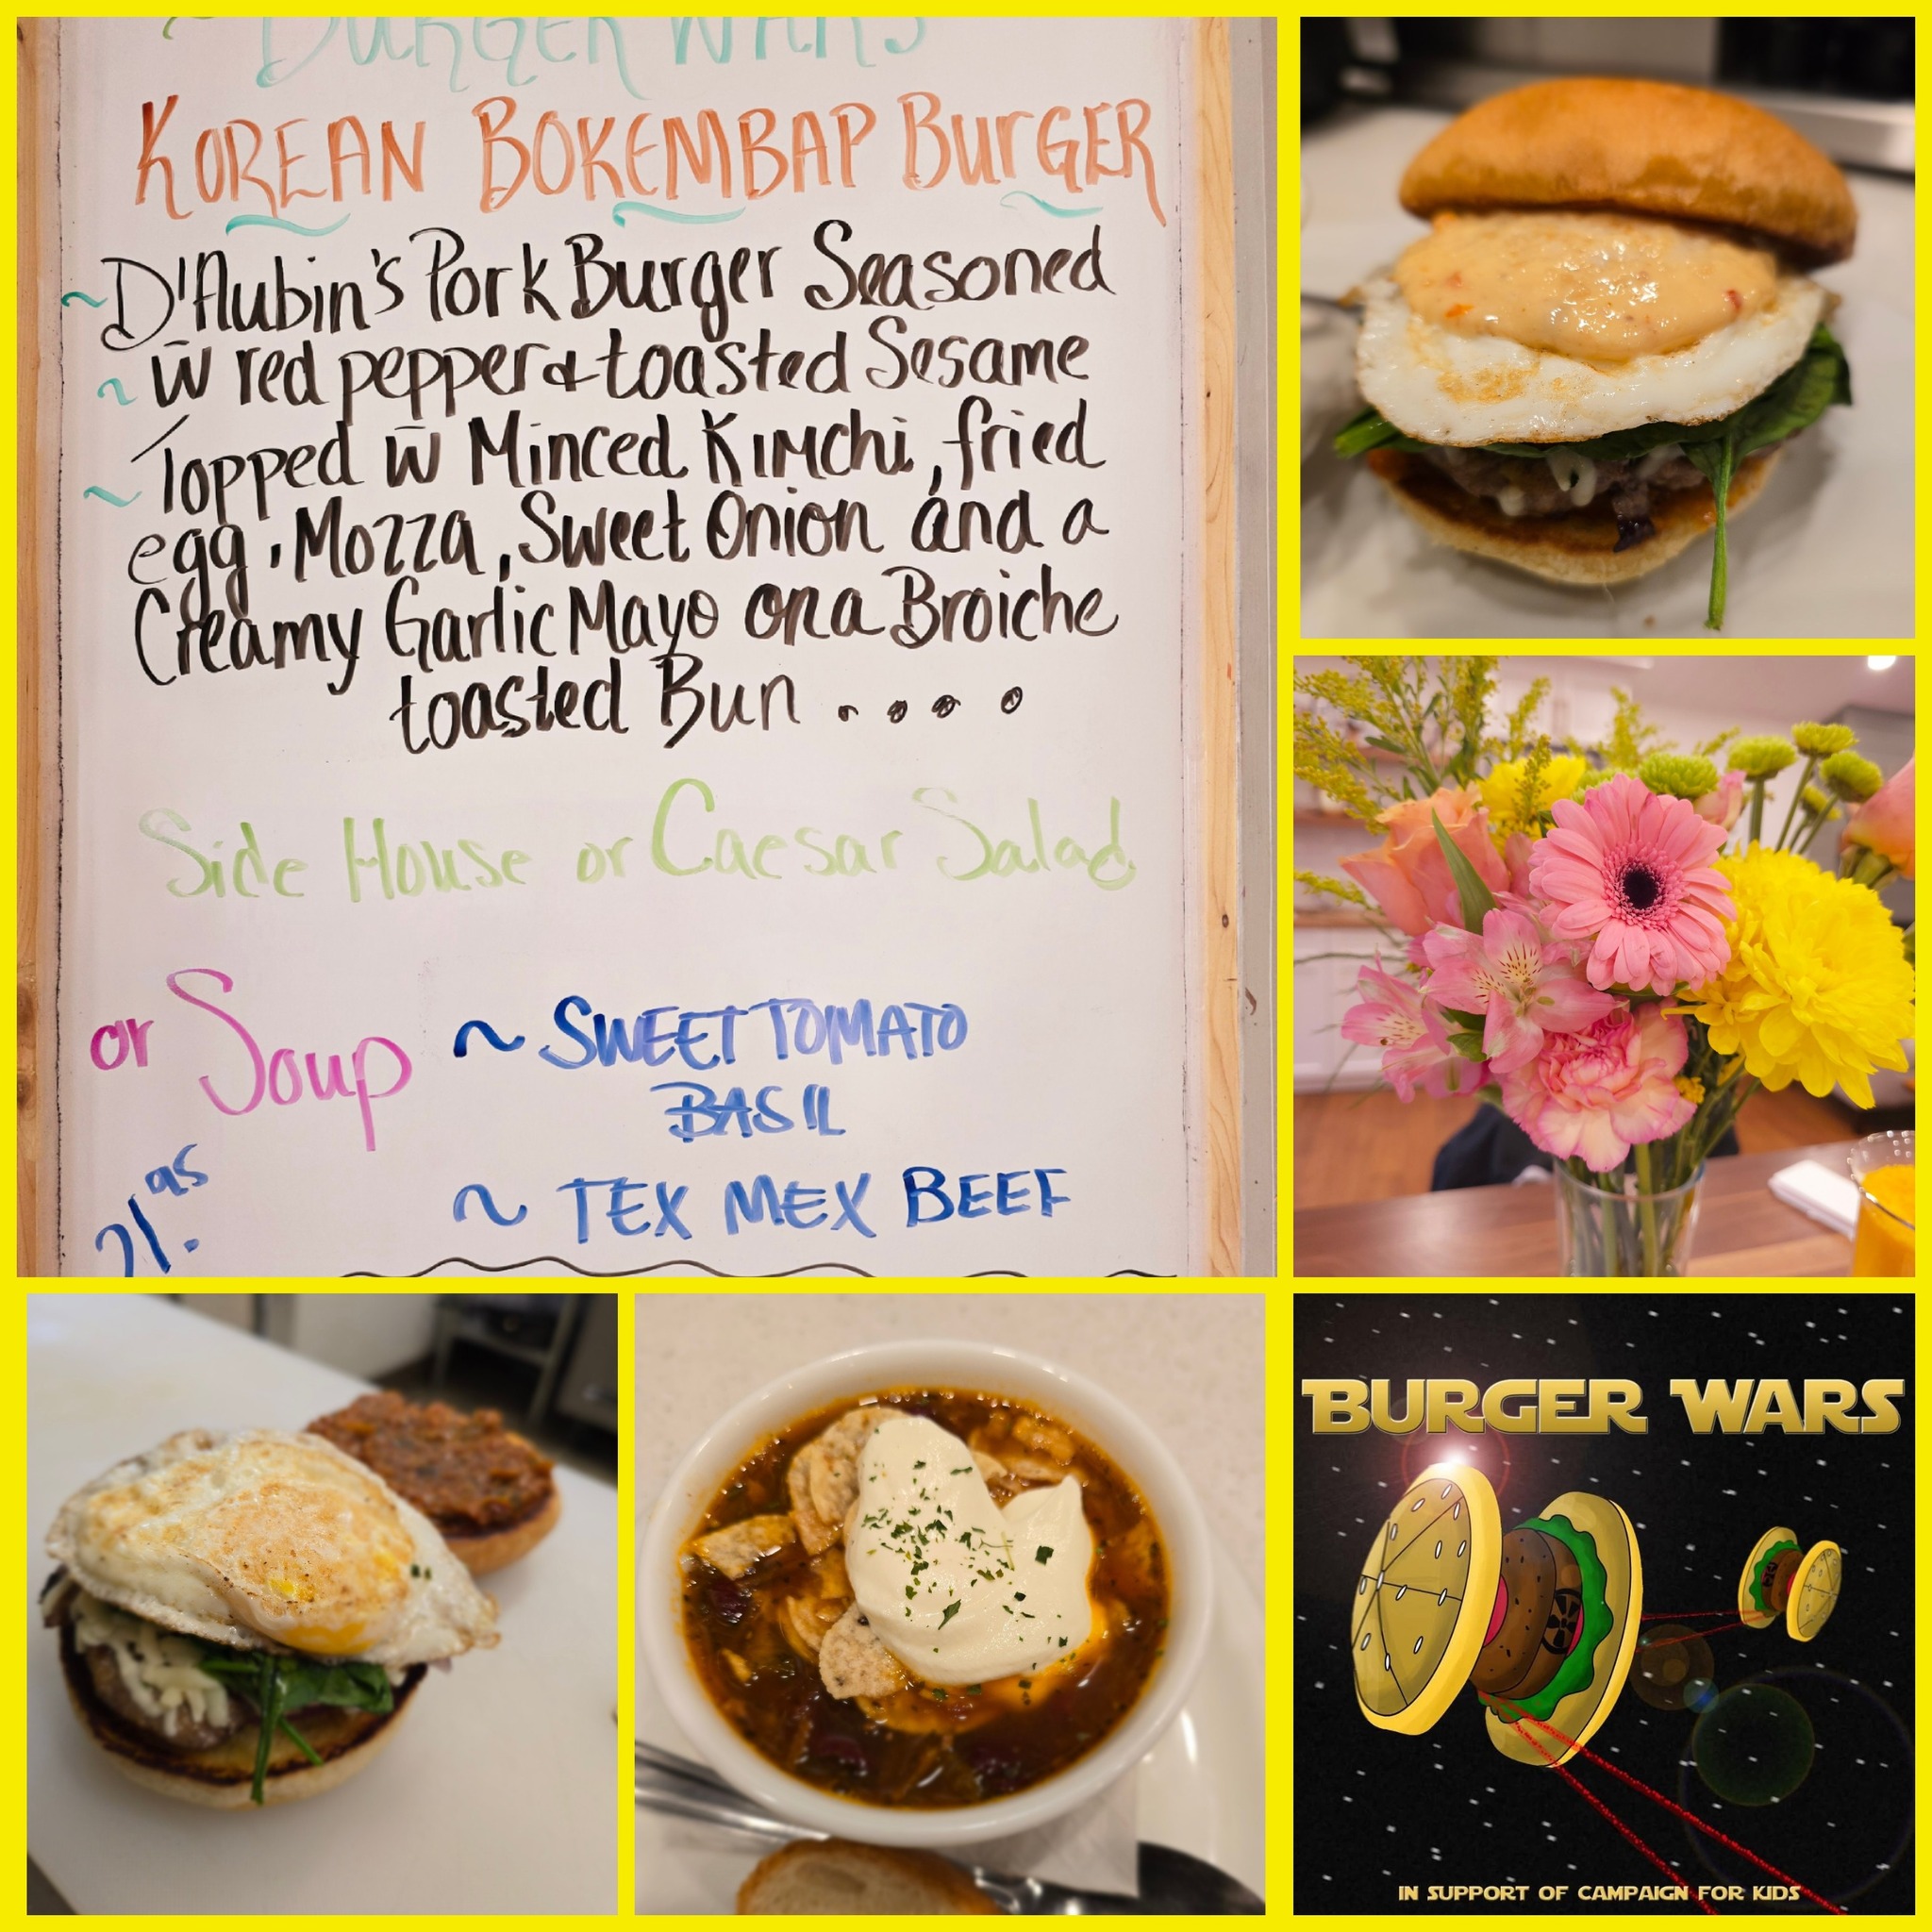 ~ BURGER WARS
KOREAN BOKEMBAP BURGER
~ D'Aubin's Pork Burger Seasoned
~ w̄ red pepper & toasted Sesame
~ Topped w̄ Minced Kimchi, fried
egg, Mozza, Sweet Onion and a
Creamy Garlic Mayo on a Broiche
toasted Bun . . . .
Side House or Caesar Salad
or Soup ~ SWEET TOMATO
BASIL
~ TEX MEX BEEF
21.95
BURGER WARS
IN SUPPORT OF CAMPAIGN FOR KIDS